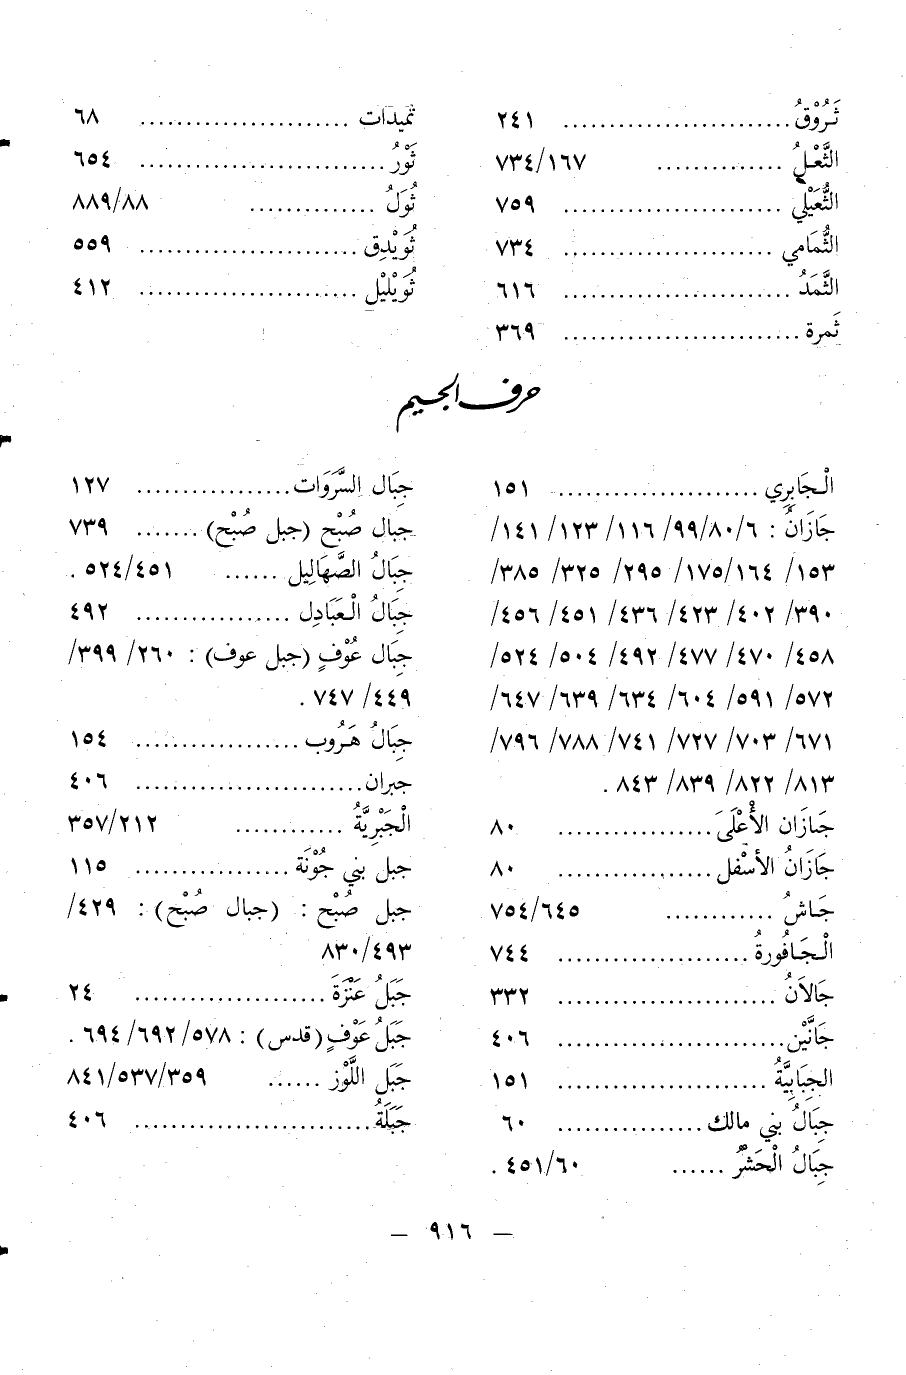 ثَرُوْقُ ......................... ٢٤١
الثَّعْلُ .............. ١٦٧/ ٧٣٤
الثُّعَيْلي ........................ ٧٥٩
الثُّمَامي ....................... ٧٣٤
الثَّمَدُ ......................... ٦١٦
ثَمرة .......................... ٣٦٩
ثميدات ....................... ٦٨
ثَوْرُ ........................... ٦٥٤
ثُوَلُ .............. ٨٨/ ٨٨٩
ثُوَيْدِق ........................ ٥٥٩
ثُوَيْلِيْل ........................ ٤١٢
حرف الجيم
الْجَابِرِي ...................... ١٥١
جَازَانُ : ٦/ ٨٠/ ٩٩/ ١١٦/ ١٢٣/ ١٤١/
١٥٣/ ١٦٤/ ١٧٥/ ٢٩٥/ ٣٢٥/ ٣٨٥/
٣٩٠/ ٤٠٢/ ٤٢٣/ ٤٣٦/ ٤٥١/ ٤٥٦/
٤٥٨/ ٤٧٠/ ٤٧٧/ ٤٩٢/ ٥٠٤/ ٥٢٤/
٥٧٢/ ٥٩١/ ٦٠٤/ ٦٣٤/ ٦٣٩/ ٦٤٧/
٦٧١/ ٧٠٣/ ٧٢٧/ ٧٤١/ ٧٨٨/ ٧٩٦/
٨١٣/ ٨٢٢/ ٨٣٩/ ٨٤٣ .
جَازَان الأَعْلَىَ ................. ٨٠
جَازَانُ الأسْفل ................. ٨٠
جَاشُ ............ ٦٤٥/ ٧٥٤
الْجَافُورةُ ..................... ٧٤٤
جَالاَنُ ........................ ٣٣٢
جَانَّيْن ......................... ٤٠٦
الجِبَابِيَّةُ ....................... ١٥١
جِبَالُ بني مالك ................ ٦٠
جِبَالُ الْحَشْرُ ...... ٦٠/ ٤٥١ .
جِبَال السَّرَوَات ................. ١٢٧
جبال صُبْح (جبل صُبْح) ....... ٧٣٩
جِبَالُ الصَّهَالِيل ...... ٤٥١/ ٥٢٤ .
جِبَالُ الْعَبَادِل ................. ٤٩٢
جِبَال عُوْفٍ (جبل عوف) : ٢٦٠/ ٣٩٩/
٤٤٩/ ٧٤٧ .
جِبَالُ هَرُوب .................. ١٥٤
جبران ......................... ٤٠٦
الْجَبْرِيَّةُ ............ ٢١٢/ ٣٥٧
جبل بني جُوْنَة ................. ١١٥
جبل صُبْح : (جبال صُبْح) : ٤٢٩/
٤٩٣/ ٨٣٠
جَبَلُ عَنْزَةَ ..................... ٢٤
جَبَلُ عَوْفٍ (قدس) : ٥٧٨/ ٦٩٢/ ٦٩٤ .
جَبَل اللَّوْز ...... ٣٥٩/ ٥٣٧/ ٨٤١
جَبَلَةُ .......................... ٤٠٦
— ٩١٦ —